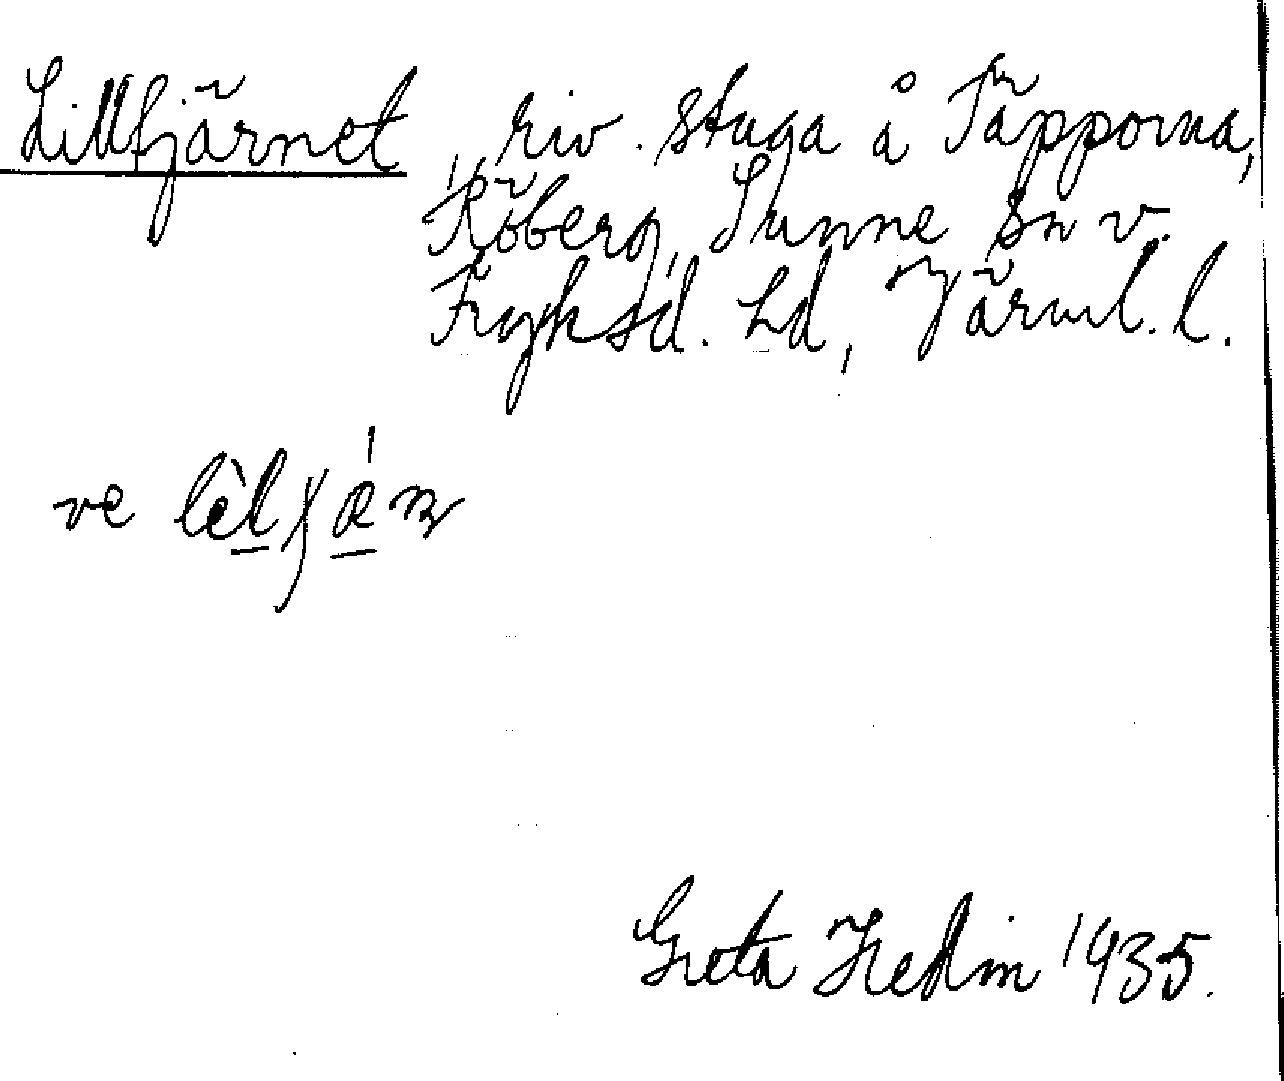 Lilltjärnet, riv. stuga å Täpporna,
Röberg, Sunne sn v.
Fryksd. hd, Värml. l.
ve
Greta Hedin 1935.